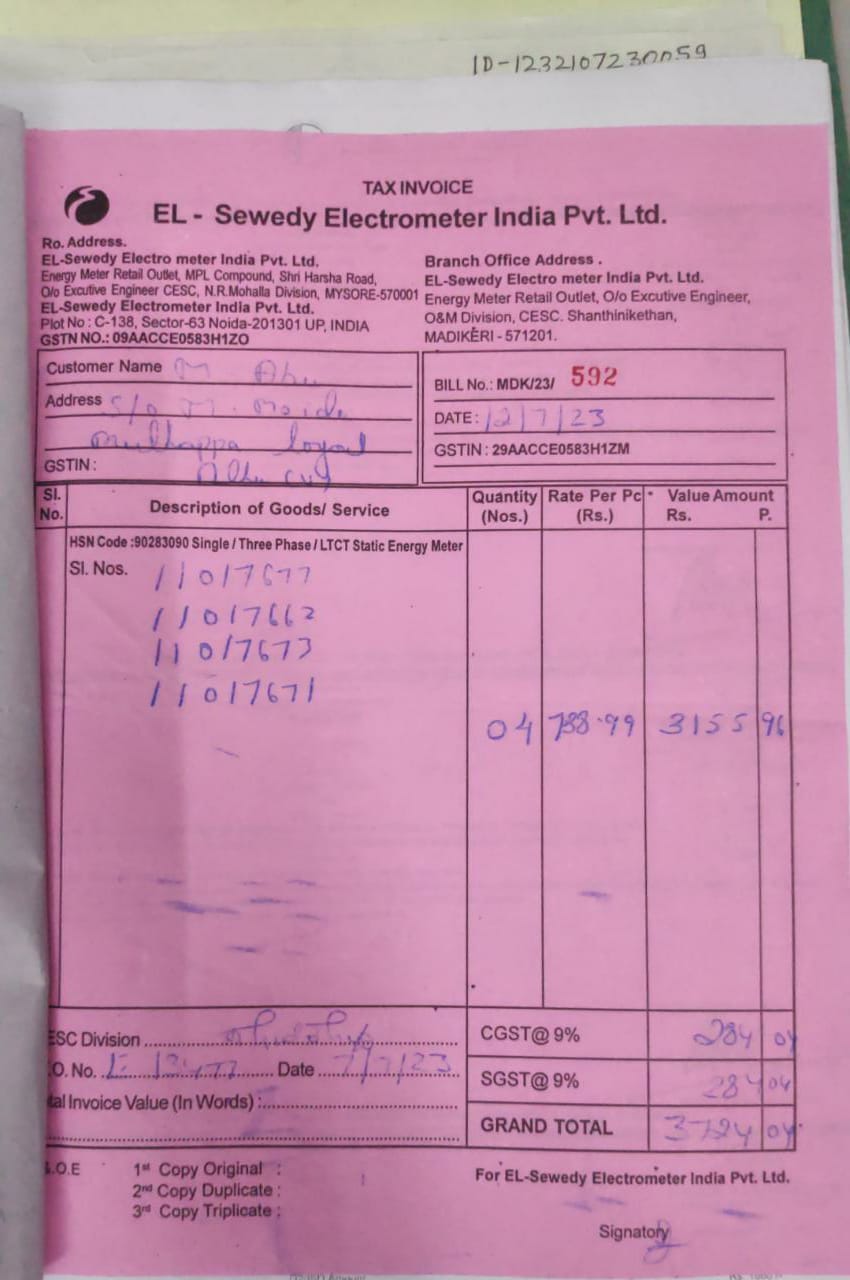 ID-1232107230059
TAX INVOICE
EL - Sewedy Electrometer India Pvt. Ltd.
Ro. Address.
EL-Sewedy Electro meter India Pvt. Ltd.
Energy Meter Retail Outlet, MPL Compound, Shri Harsha Road,
O/o Excutive Engineer CESC, N.R.Mohalla Division, MYSORE-570001
EL-Sewedy Electrometer India Pvt. Ltd.
Plot No : C-138, Sector-63 Noida-201301 UP, INDIA
GSTN NO.: 09AACCE0583H1ZO
Branch Office Address .
EL-Sewedy Electro meter India Pvt. Ltd.
Energy Meter Retail Outlet, O/o Excutive Engineer,
O&M Division, CESC. Shanthinikethan,
MADIKERI - 571201.
Customer Name M
Address S/o M.
GSTIN :
BILL No.: MDK/23/ 592
DATE : 12/7/23
GSTIN : 29AACCE0583H1ZM
Sl. No. Description of Goods/ Service Quantity (Nos.) Rate Per Pc (Rs.) Value Amount Rs. P.
HSN Code :90283090 Single / Three Phase / LTCT Static Energy Meter
Sl. Nos. 11017677
11017662
11017673
11017671
04 788.99 3155 96
ESC Division
O. No. Date 7/7/23
tal Invoice Value (In Words) :
CGST@ 9% 284 04
SGST@ 9% 284 04
GRAND TOTAL 3724 04
.O.E
1st Copy Original :
2nd Copy Duplicate :
3rd Copy Triplicate :
For EL-Sewedy Electrometer India Pvt. Ltd.
Signatory